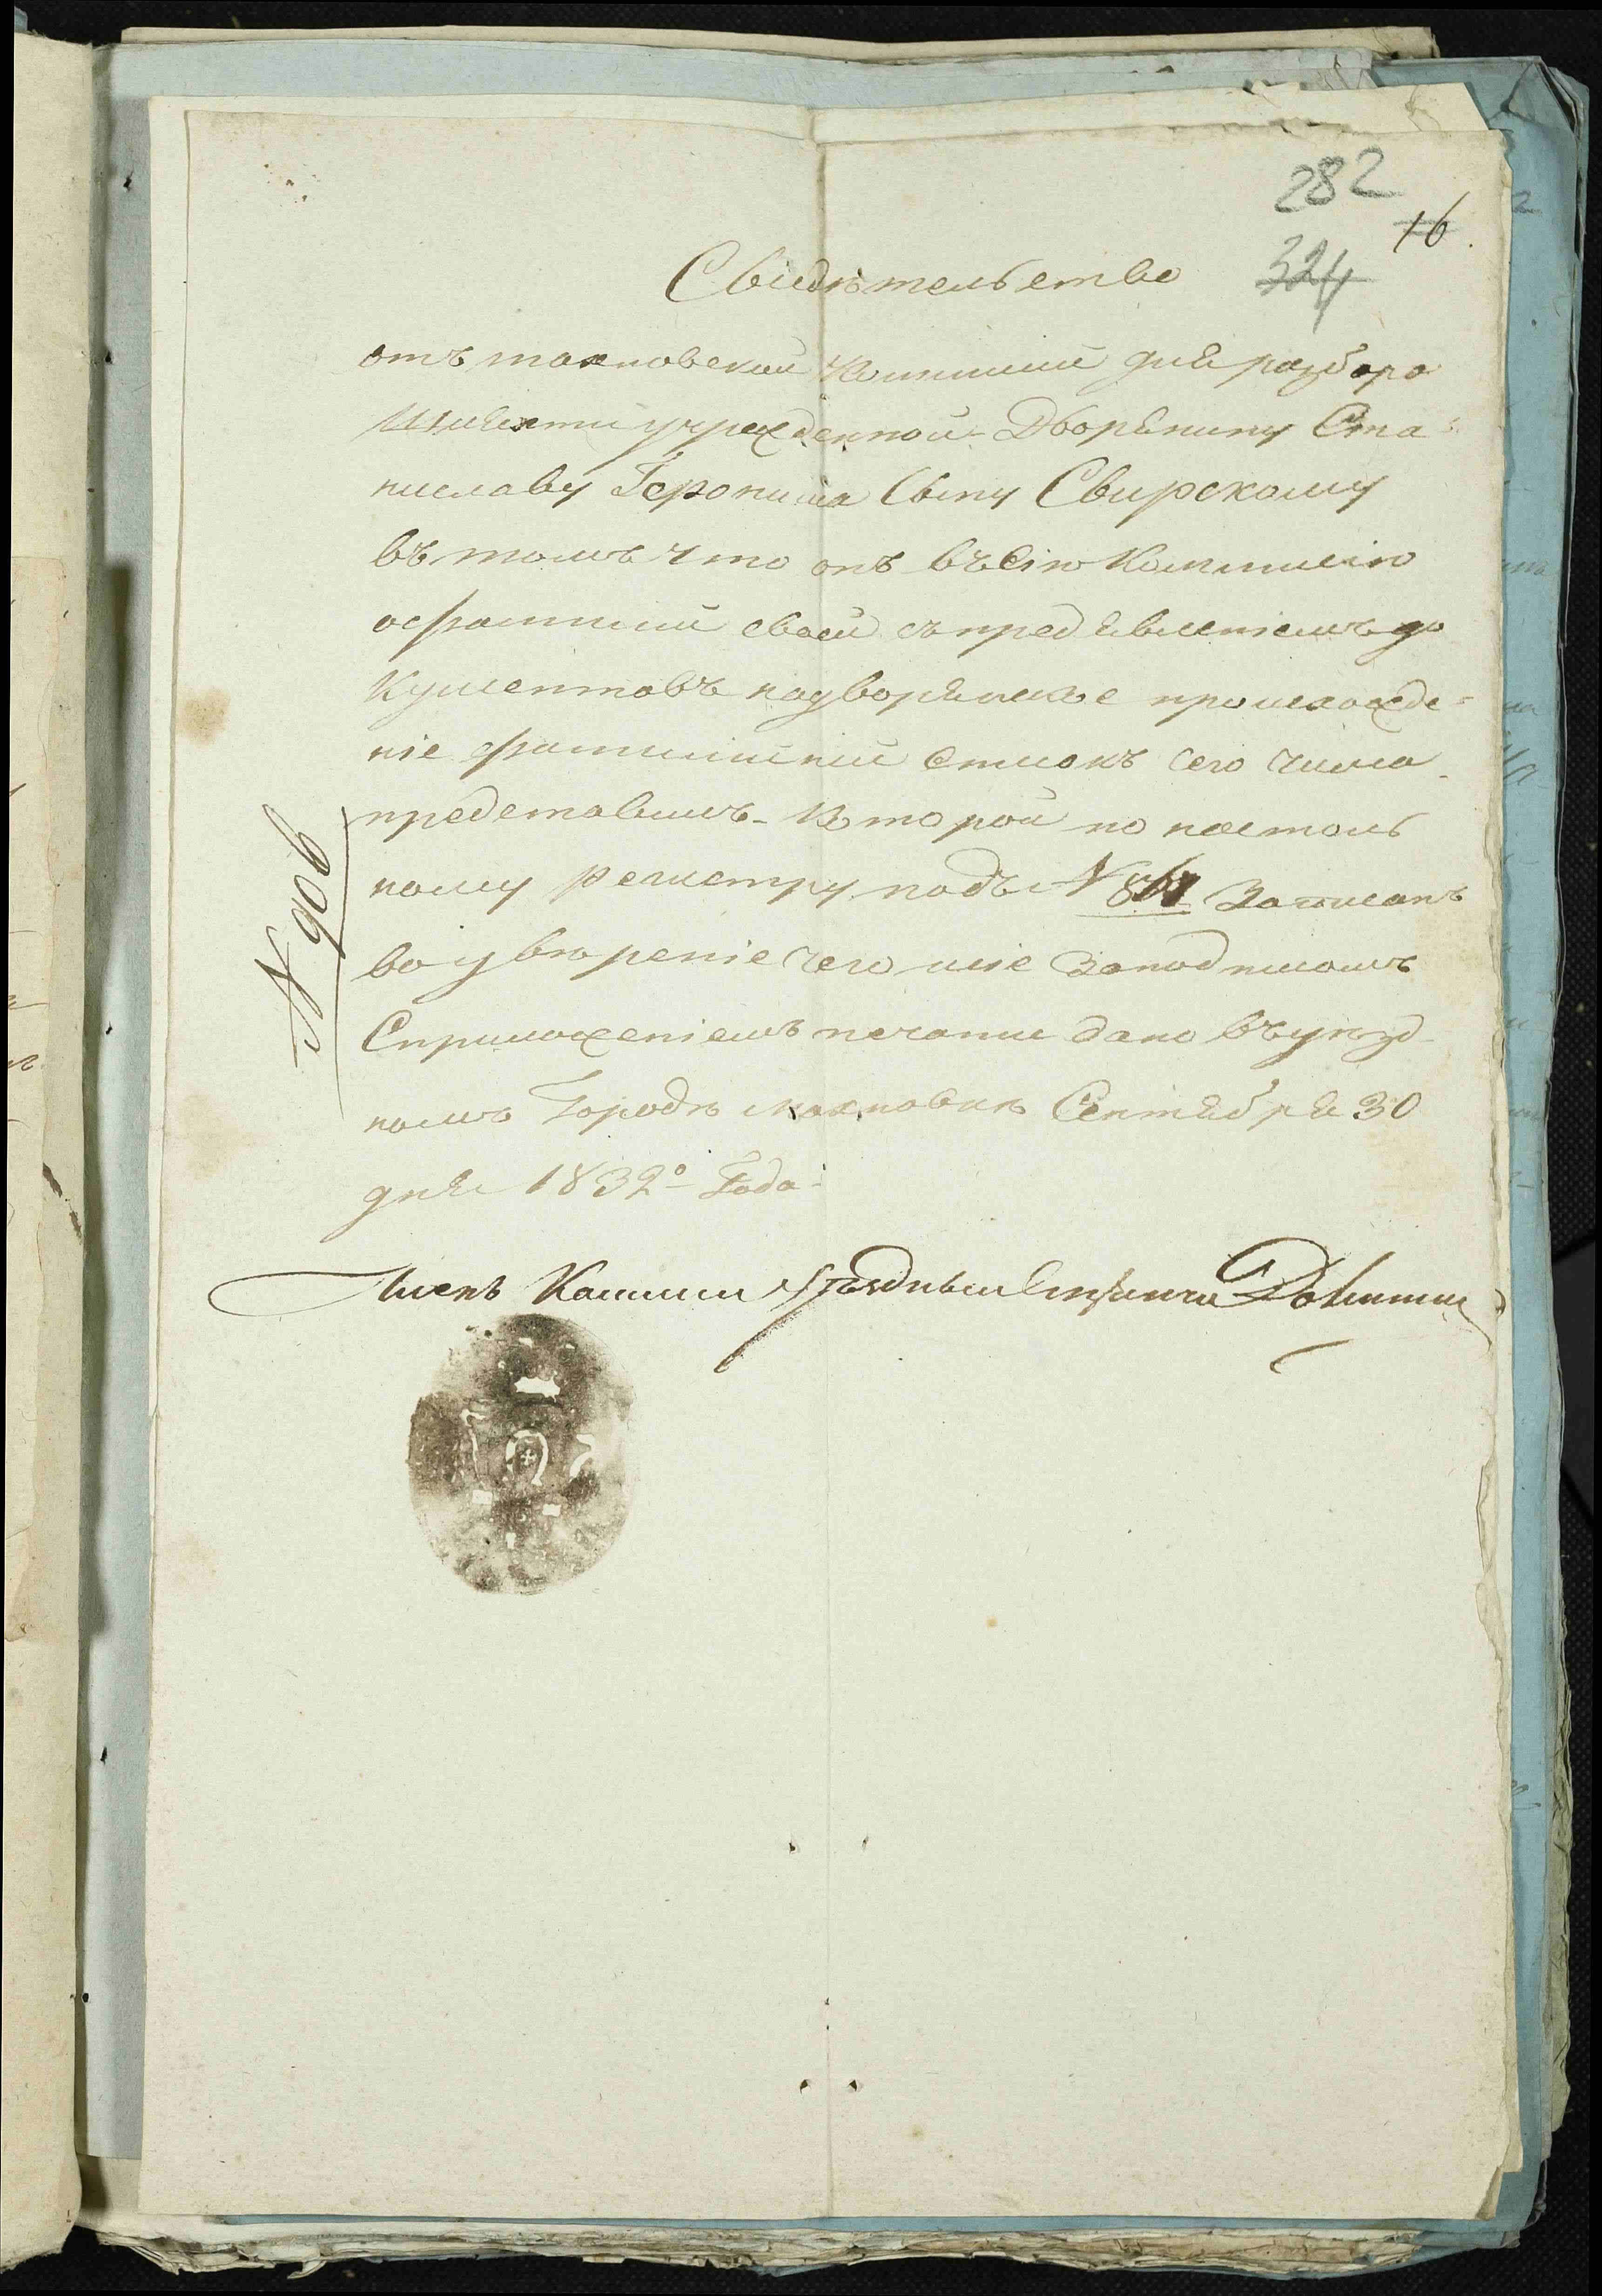 282
16.
324
Свидѣтельство
отъ махновской Коммисіи для разбора
Шляхти учрежденной Дворянину Ста-
ниславу Іеронима Сыну Свирскому
въ томъ что онъ въ Сію Коммисію
о фамиліи своей съ предъявленіемъ до
кументовъ на дворянское происхожде-
ніе фамилійній списокъ сего числа
представилъ. Которой по настоль
ному регистру подъ N Записанъ
во увѣреніе чего сіе за подписомъ
С приложеніемъ печати дано въ уезд-
номъ Городѣ махновкѣ Сентября 30
дня 1832º Года:
N 906
Членъ Комиси Уѣздный